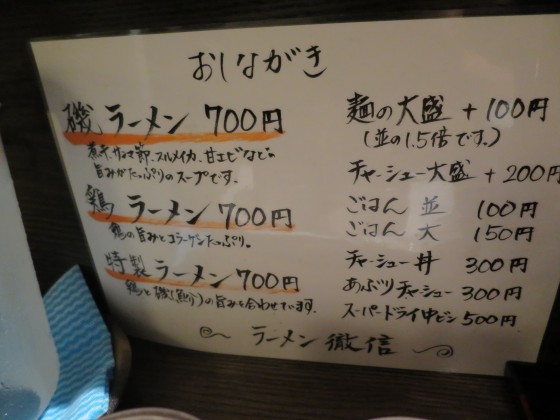 おしながき
磯ラーメン 700円
煮干、サバ節、スルメイカ、甘エビなどの
旨みがたっぷりのスープです。
鶏ラーメン 700円
鶏の旨みとコラーゲンたっぷり。
特製ラーメン 700円
鶏と磯(魚介)の旨みを合わせています。
麺の大盛 +100円
(並の1.5倍です。)
チャーシュー大盛 +200円
ごはん 並 100円
ごはん 大 150円
チャーシュー丼 300円
あぶりチャーシュー 300円
スーパードライ中ビン 500円
ラーメン 徹信